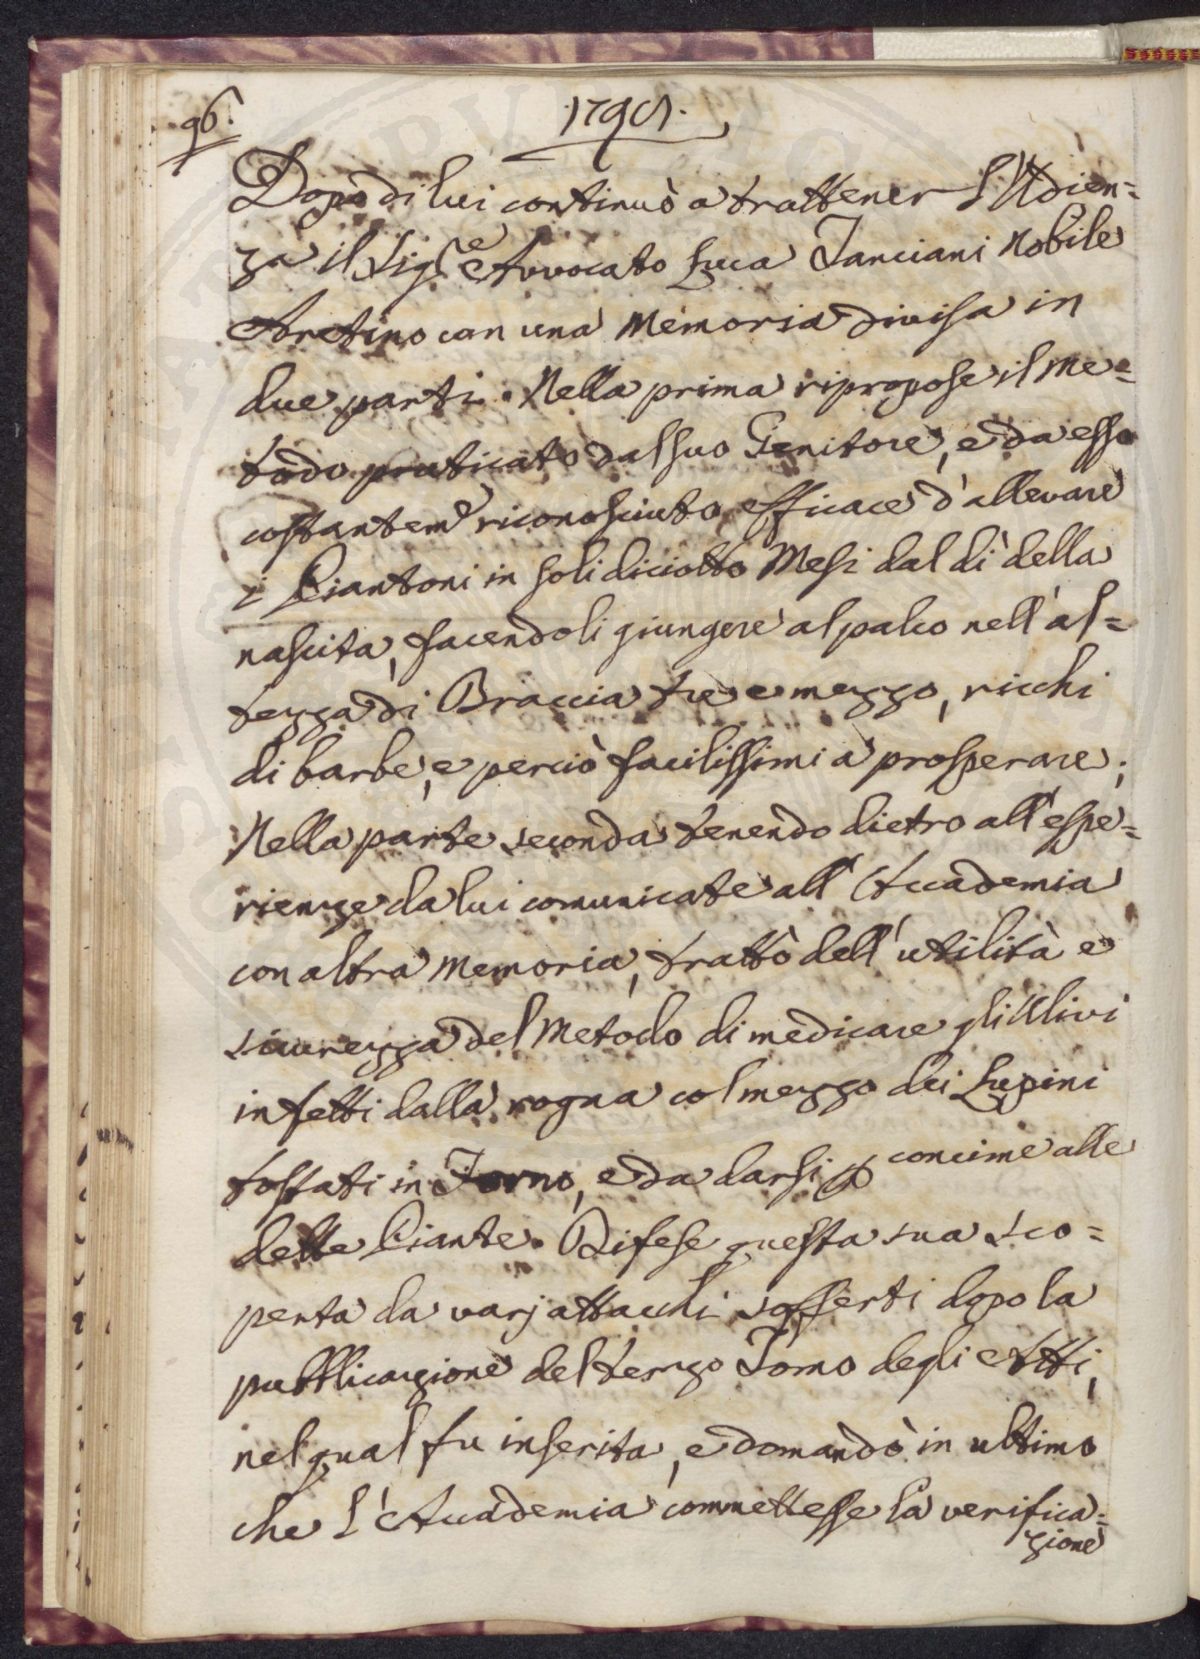 96.
1795.
Dopo di lui continuò a trattener l'Udien=
za il Sig.e Avvocato Luca Tanciani Nobile
Aretino con una Memoria divisa in
due parti. Nella prima ripropose il Me=
todo praticato dal suo Genitore, e da esso
costantem.e riconosciuto efficace d'allevare
i Piantoni in soli diciotto Mesi dal dì della
nascita, facendoli giungere al palco nell'al=
tezza di Braccia tre e mezzo, ricchi
di barbe, e perciò facilissimi a prosperare;
Nella parte seconda tenendo dietro all'espe=
rienze da lui comunicate all'Accademia
con altra Memoria, trattò dell'utilità e
sicurezza del Metodo di medicare gli Ulivi
infetti dalla rogna col mezzo dei Lupini
tostati in Forno, e da darsi p concime alle
dette Piante. Difese questa sua sco=
perta da varj attacchi sofferti dopo la
pubblicazione del terzo Tomo degli Atti,
nel qual fu inserita, e domandò in ultimo
che l'Accademia commettesse la verifica=
zione